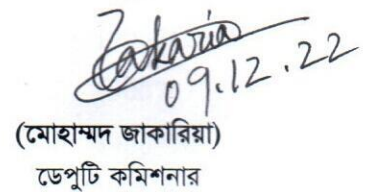 Zakaria
09.12.22
(মোহাম্মদ জাকারিয়া)
ডেপুটি কমিশনার